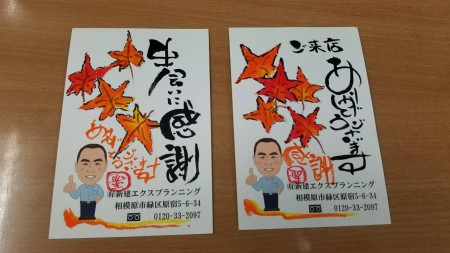 出会いに
感謝
ありがとうございます
㈲新建エクスプランニング
相模原市緑区原宿5-6-34
0120-33-2097
ご来店
ありがとうございます
感謝
㈲新建エクスプランニング
相模原市緑区原宿5-6-34
0120-33-2097